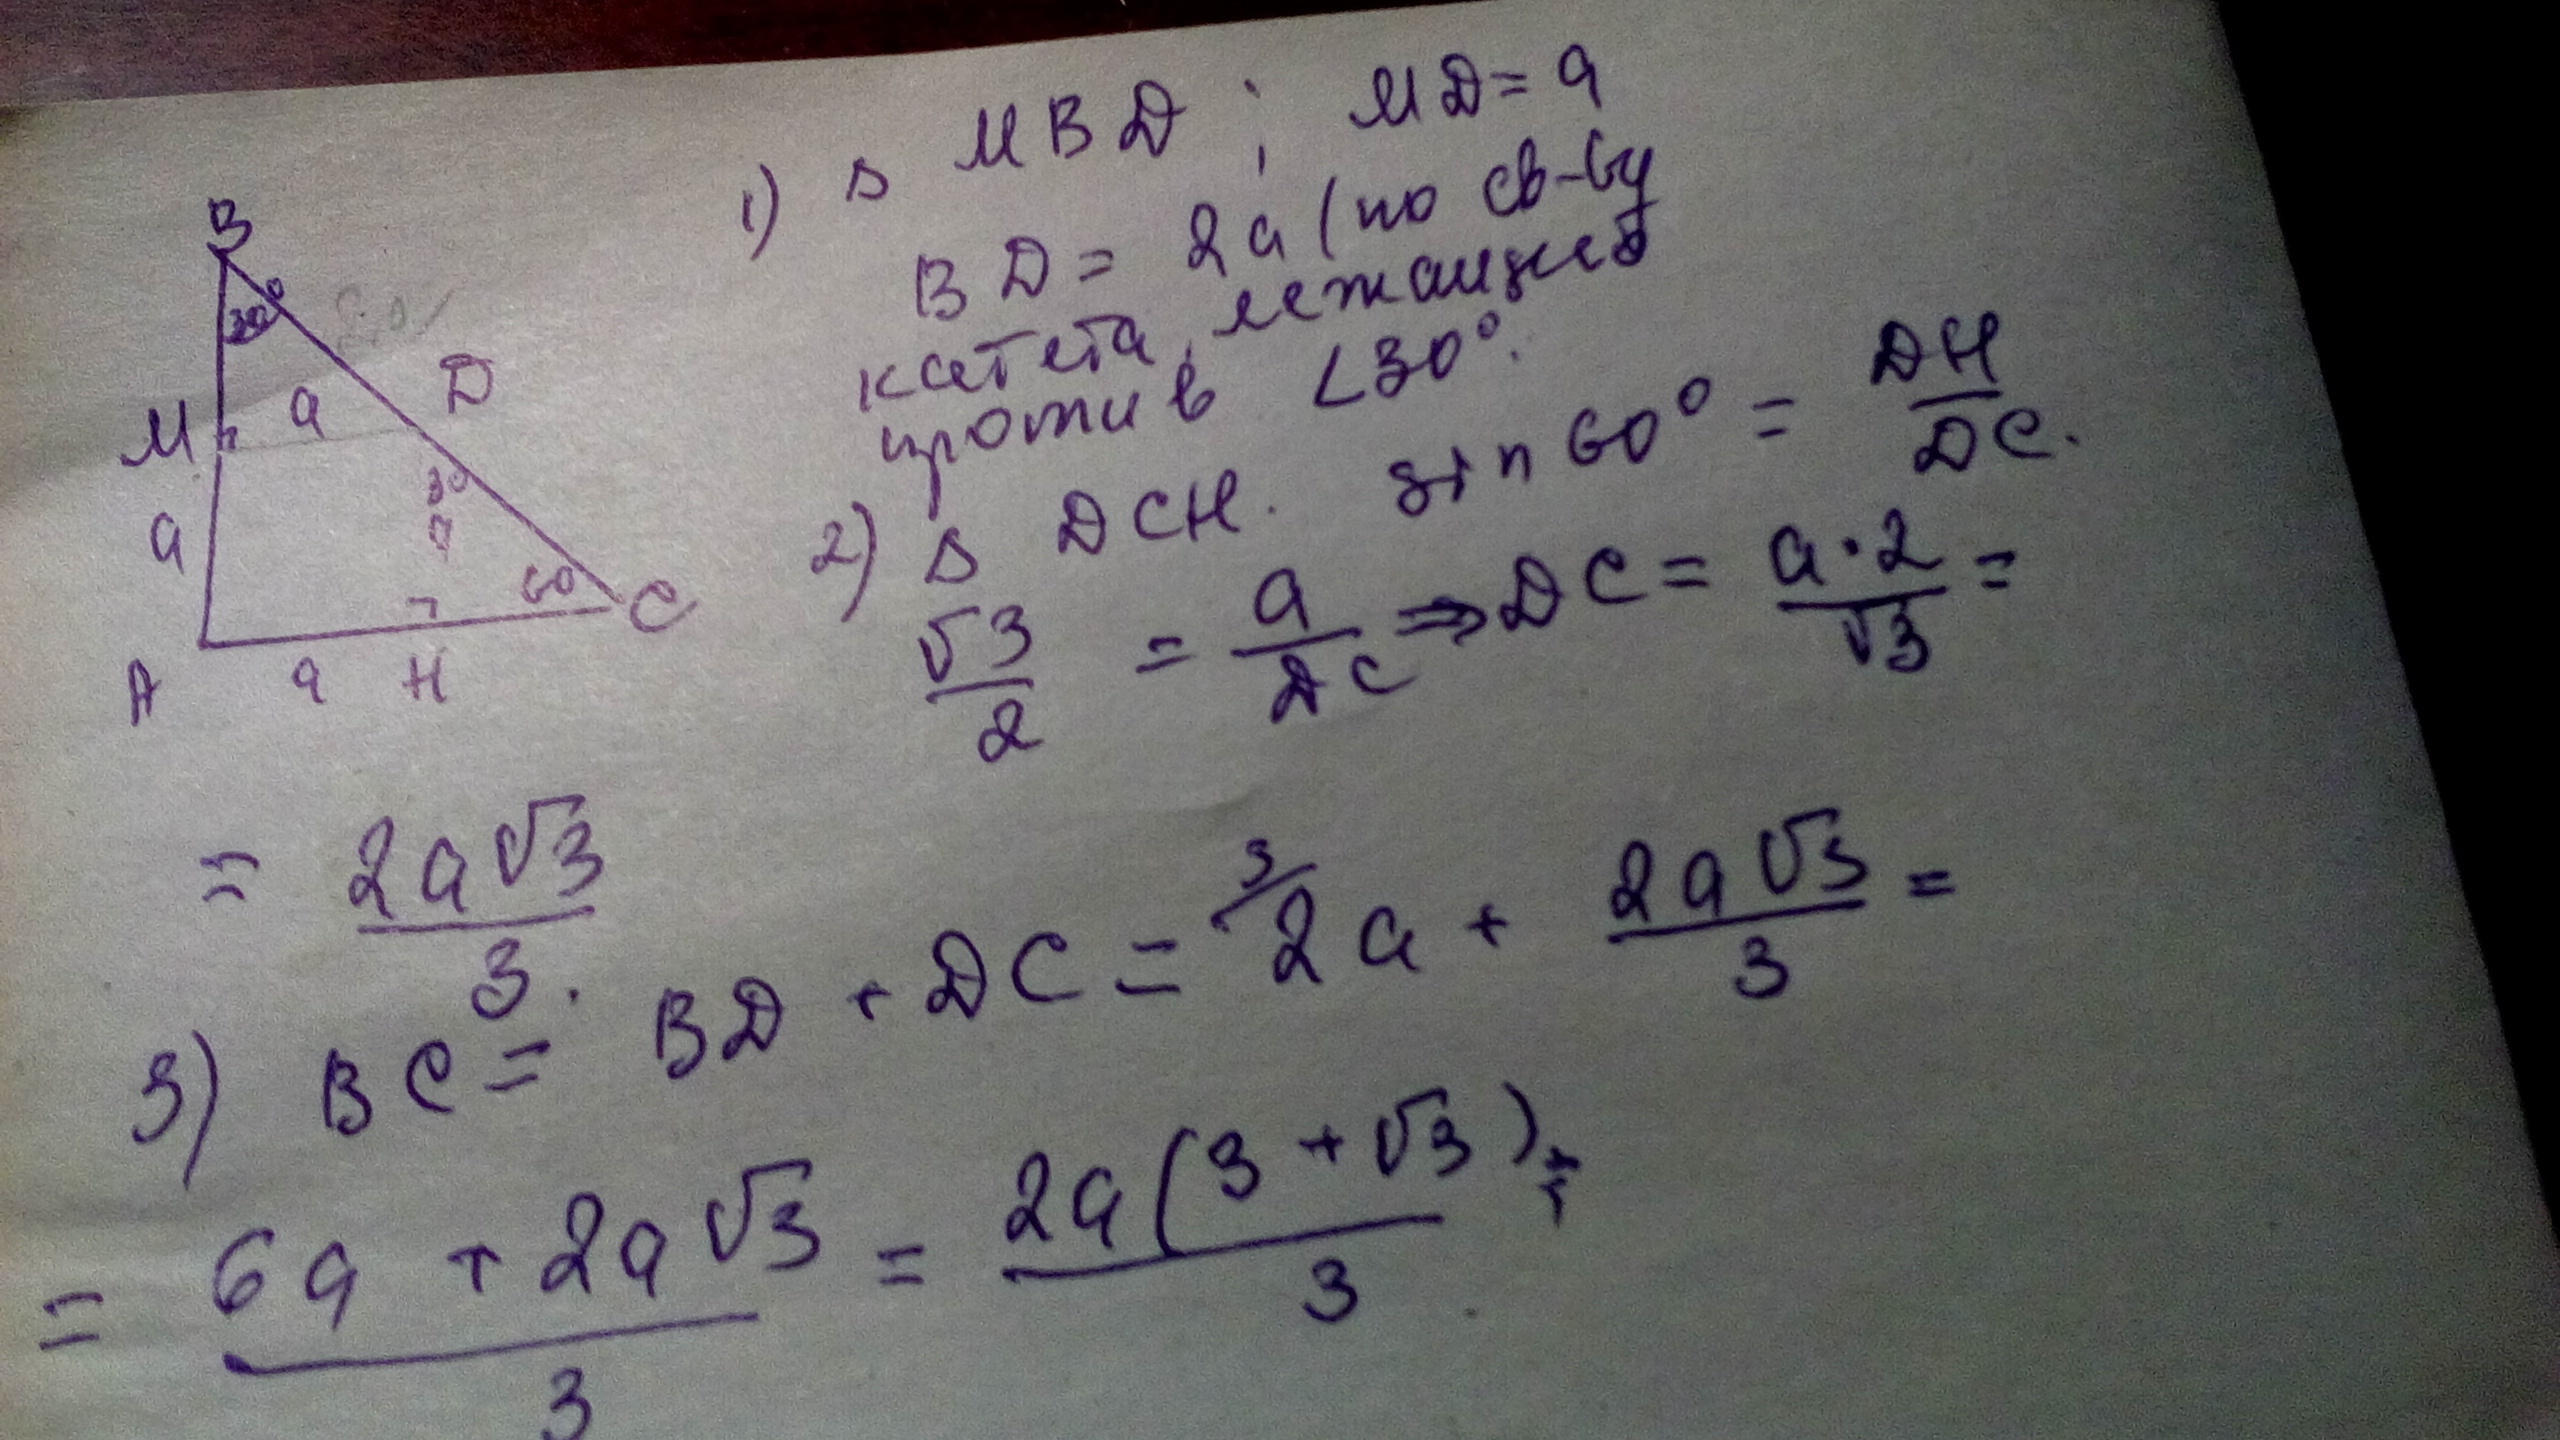 B
30°
M
a
D
30
a
a
60
C
A
a
H
1) Δ MBD; MD = a
BD = 2a (по св-ву
катета, лежащего
против ∠30°.
2) Δ DCH. sin 60° = DH/DC.
√3/2 = a/DC ⇒ DC = a·2/√3 =
= 2a√3/3.
3) BC = BD + DC = 3/2a + 2a√3/3 =
= 6a + 2a√3/3 = 2a(3+√3)/3